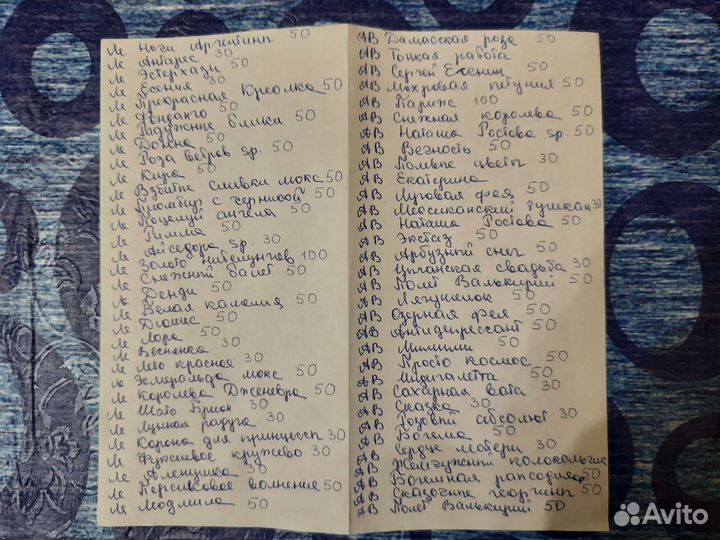 Ле Ночи Аргентины 50
Ле Антарес 30
Ле Эстерхази 50
Ле Есения 30
Ле Прекрасная Креолка 50
Ле Фонданго 50
Ле Радужные блики 50
Ле 50
Ле Роза ветров sp. 50
Ле Кира 50
Ле Взбитые сливки мокс 50
Ле Пломбир с черникой 50
Ле Поцелуй ангела 50
Ле Римма 50
Ле Айседора sp. 30
Ле Золото Нибелунгов 100
Ле Снежный балет 50
Ле Денди 50
Ле Белая каломия 50
Ле Дюшес 50
Ле Лора 50
Ле Веснянка
Ле Лето красное 30
Ле Эсмеральда мокс 50
Ле Королева Дженевра 50
Ле Шато Брион 30
Ле Лунная радуга 30
Ле Корона для принцессы 30
Ле Фуксиевое кружево 30
Ле Аленушка 30
Ле Персиковое волнение 50
Ле Модмила 50
АВ Дамасская роза 50
АВ Тонкая работа
АВ Сергей Есенин 50
АВ Махровая петуния 50
АВ Париж 100
АВ Снежная королева 50
АВ Наташа Ростова sp. 50
АВ Вечность 50
АВ Полевые цветы 30
АВ Екатерина
АВ Луговая фея 50
АВ Мексиканский тушкан 30
АВ Наташа Ростова 50
АВ Экстаз 50
АВ Арбузный снег 50
АВ Цыганская свадьба 30
АВ Полёт Валькирий 50
АВ Легушонок 50
АВ Озерная фея 50
АВ Антидепрессант 50
АВ Милиши 50
АВ Просто космос 50
АВ Индиголетта 50
АВ Сахарная вата 30
АВ Сказка 30
АВ Розовый абсолют 30
АВ Богема 50
АВ Сердце матери 30
АВ Жемчужный колокольчик
АВ Богемная рапсодия sp. 50
АВ Сказочные георгины 50
АВ Полёт Валькирий 50
Avito